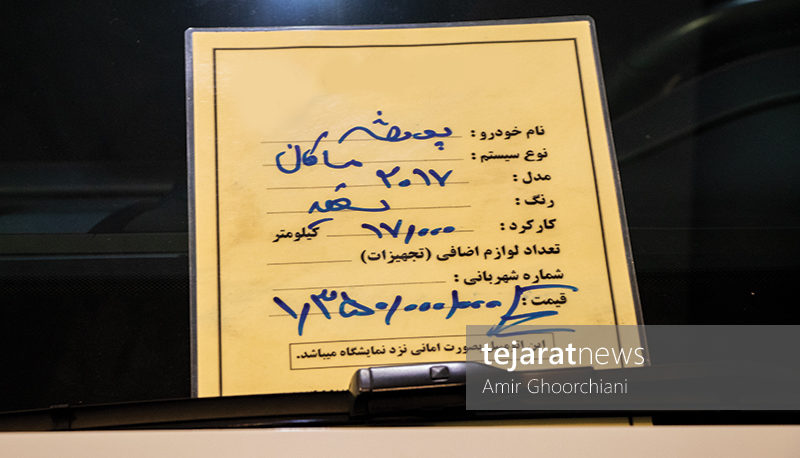 نام خودرو : پورشه
نوع سیستم : ماکان
مدل : ۲۰۱۷
رنگ : سفید
کارکرد : ۱۷/۰۰۰ کیلومتر
تعداد لوازم اضافی (تجهیزات)
شماره شهربانی :
قیمت : ۱/۳۵۰/۰۰۰/۰۰۰
این اتومبیل بصورت امانی نزد نمایشگاه میباشد.
tejaratnews
Amir Ghoorchiani